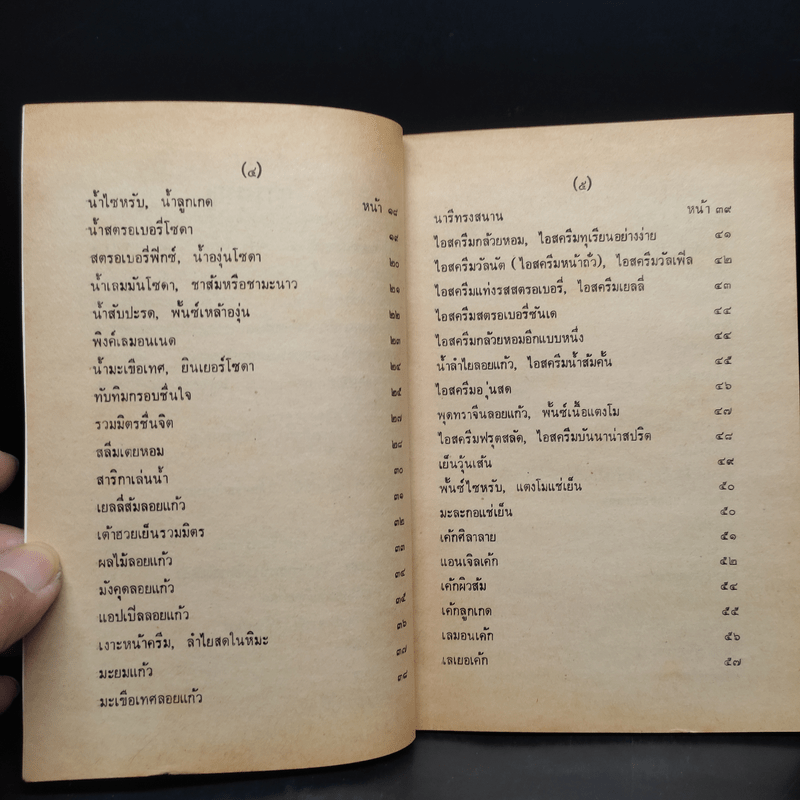 (๔)
น้ำไซหรับ, น้ำลูกเกด หน้า ๑๘
น้ำสตรอเบอรี่โซดา ๑๙
สตรอเบอรี่ฟีกซ์, น้ำองุ่นโซดา ๒๐
น้ำเลมมันโซดา, ชาส้มหรือชามะนาว ๒๑
น้ำสับปะรด, พั้นซ์เหล้าองุ่น ๒๒
พิงค์เลมอนเนด ๒๓
น้ำมะเขือเทศ, ยินเยอร์โซดา ๒๔
ทับทิมกรอบชื่นใจ ๒๕
รวมมิตรชื่นจิต ๒๗
สลิ่มเตยหอม ๒๘
สาริกาเล่นน้ำ ๓๐
เยลลี่ส้มลอยแก้ว ๓๑
เต้าฮวยเย็นรวมมิตร ๓๒
ผลไม้ลอยแก้ว ๓๓
มังคุดลอยแก้ว ๓๔
แอปเปิ้ลลอยแก้ว ๓๕
เงาะหน้าครีม, ลำไยสดในหิมะ ๓๖
มะยมแก้ว ๓๗
มะเขือเทศลอยแก้ว ๓๘
(๕)
นารีทรงสนาน หน้า ๓๙
ไอสครีมกล้วยหอม, ไอสครีมทุเรียนอย่างง่าย ๔๑
ไอสครีมวัลนัต (ไอสครีมหน้าถั่ว), ไอสครีมวัลเฟิล ๔๒
ไอสครีมแท่งรสสตรอเบอรี่, ไอสครีมเยลลี่ ๔๓
ไอสครีมสตรอเบอรี่ซันเด ๔๔
ไอสครีมกล้วยหอมอีกแบบหนึ่ง ๔๔
น้ำลำไยลอยแก้ว, ไอสครีมน้ำส้มคั้น ๔๕
ไอสครีมองุ่นสด ๔๖
พุดทราจีนลอยแก้ว, พั้นซ์เนื้อแตงโม ๔๗
ไอสครีมฟรุตสลัด, ไอสครีมบันนาน่าสปริต ๔๘
เย็นวุ้นเส้น ๔๙
พั้นซ์ไซหรับ, แตงโมแช่เย็น ๕๐
มะละกอแช่เย็น ๕๐
เค้กศิลาลาย ๕๑
แอนเจิลเค้ก ๕๒
เค้กผิวส้ม ๕๔
เค้กลูกเกด ๕๕
เลมอนเค้ก ๕๖
เลเยอเค้ก ๕๗